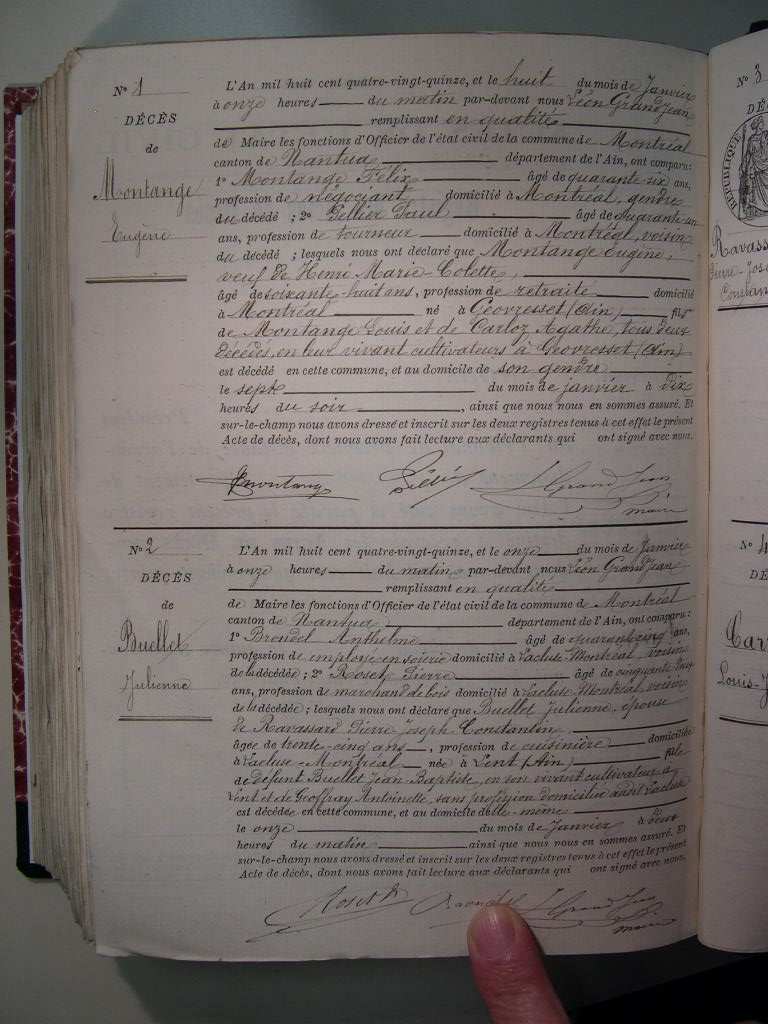 N° 1
DÉCÈS
de
Montange
Eugène
L'An mil huit cent quatre-vingt-quinze, et le huit du mois de Janvier
à onze heures du matin par-devant nous Léon Grandjean
remplissant en qualité
de Maire les fonctions d'Officier de l'état civil de la commune de Montréal
canton de Nantua département de l'Ain, ont comparu:
1° Montange Félix âgé de quarante six ans,
profession de négociant domicilié à Montréal, gendre
du décédé; 2° Paul âgé de quarante un
ans, profession de tourneur domicilié à Montréal, voisin
du décédé; lesquels nous ont déclaré que Montange Eugène,
veuf de Henri Marie-Colette,
âgé de soixante-huit ans, profession de retraité domicilié
à Montréal né à Géovresset (Ain) fils
de Montange Louis et de Carloz Agathe, tous deux
décédés, en leur vivant cultivateurs à Géovresset (Ain)
est décédé en cette commune, et au domicile de son gendre
le sept du mois de janvier à dix
heures du soir, ainsi que nous nous en sommes assuré. Et
sur-le-champ nous avons dressé et inscrit sur les deux registres tenus à cet effet le présent
Acte de décès, dont nous avons fait lecture aux déclarants qui ont signé avec nous.
Montange L Grand Jean
maire
N° 2
DÉCÈS
de
Buellet
Julienne
L'An mil huit cent quatre-vingt-quinze, et le onze du mois de Janvier
à onze heures du matin, par-devant nous Léon Grandjean
remplissant en qualité
de Maire les fonctions d'Officier de l'état civil de la commune de Montréal
canton de Nantua département de l'Ain, ont comparu:
1° Brondel Anthelme âgé de quarante cinq ans,
profession de employé en soierie domicilié à Lacluse-Montréal, voisin
de la décédée; 2° Roset Pierre âgé de cinquante deux
ans, profession de marchand de bois domicilié à Lacluse-Montréal, voisin
de la décédée; lesquels nous ont déclaré que Buellet Julienne, épouse
de Ravassard Pierre Joseph Constantin
âgée de trente-cinq ans, profession de cuisinière domiciliée
à Lacluse-Montréal née à Lent (Ain) fille
de Défunt Buellet Jean-Baptiste, en son vivant cultivateur à
Lent et de Geoffray Antoinette, sans profession domiciliée audit Lacluse
est décédée en cette commune, et au domicile de elle-même
le onze du mois de Janvier à deux
heures du matin ainsi que nous nous en sommes assuré. Et
sur-le-champ nous avons dressé et inscrit sur les deux registres tenus à cet effet le présent
Acte de décès, dont nous avons fait lecture aux déclarants qui ont signé avec nous.
Roset L Grand Jean
maire
N° 3
RÉPUBLIQUE
N° 4